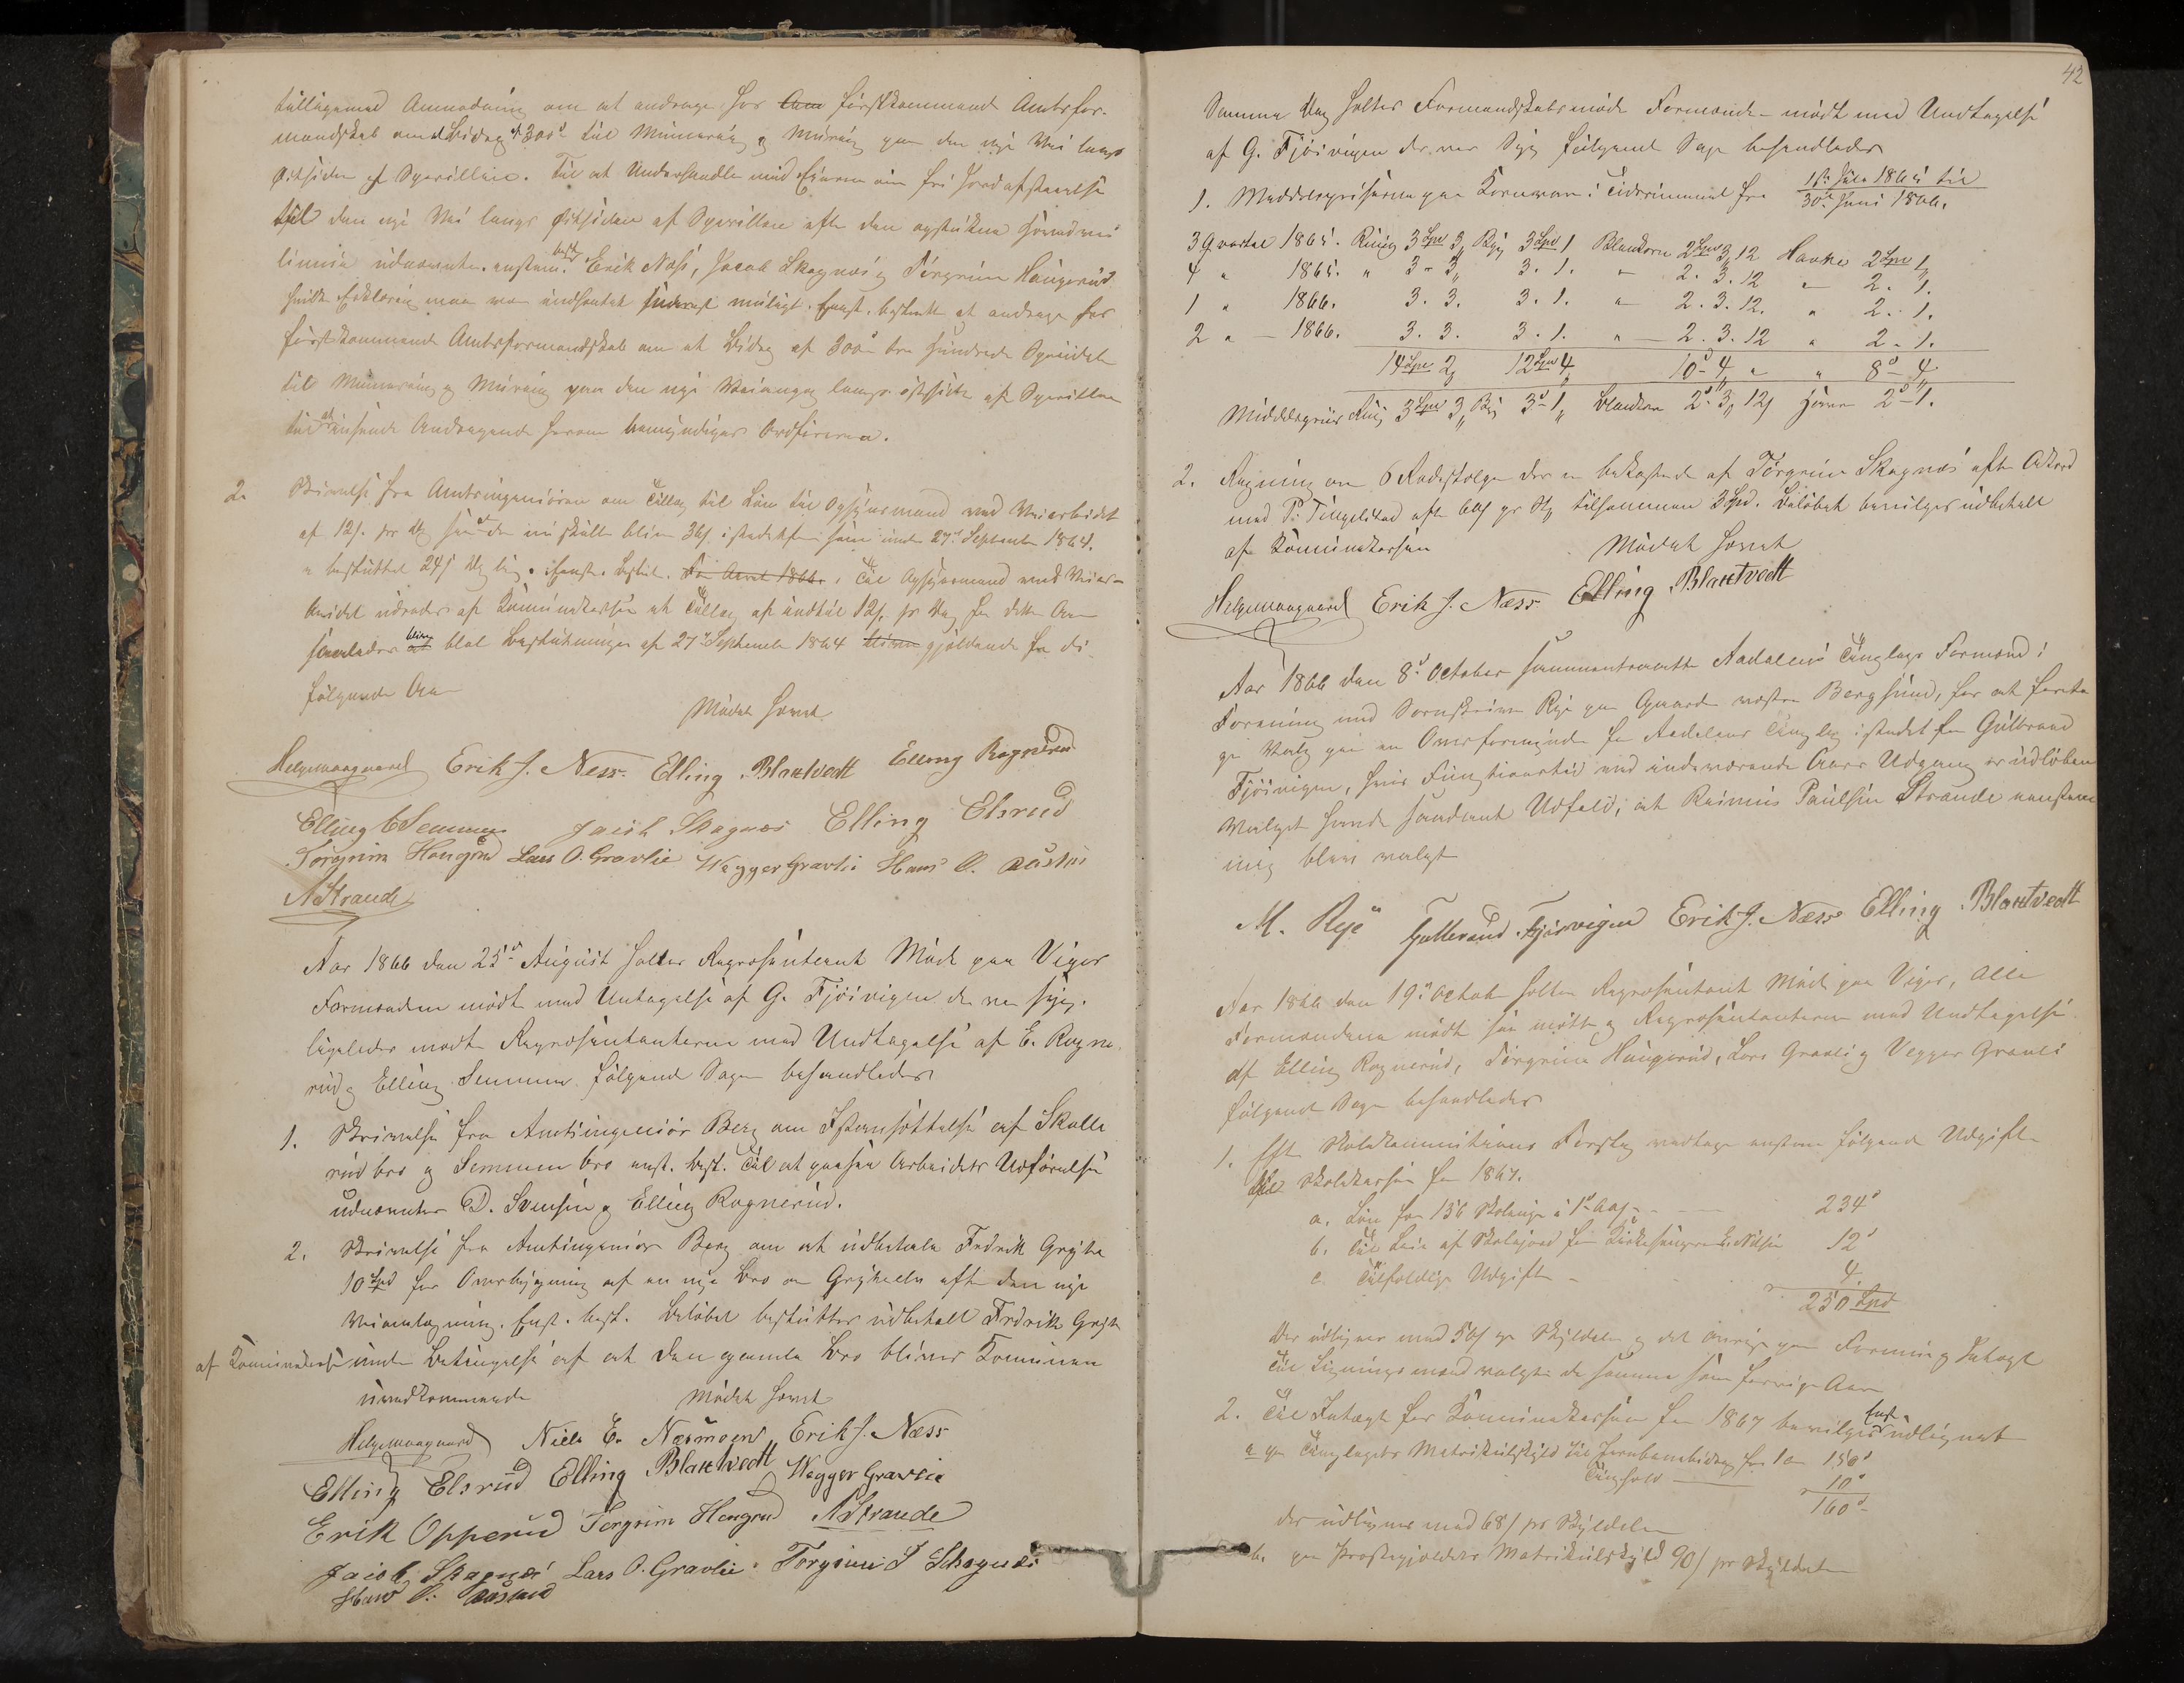 tilligemed Anmodning om at andrage for Aars förstkommende Amtsfor-
mandskab om et Bidrag af 300d til Minering og Muring paa den nye Vei langs
Östsiden af Sperillen. Til at Underhandle med Eierne om fri Jordafstaaelse
til den nye Vei langs Östsiden af Sperillen efter den opstukne
linnie udnævntes enstem. best. Erik Næss, Jacob Skagnæs og Törgrim Haugerud
hvilke Erklæring maa være indhentet snarest muligt. Enst. besluttet at andrage for
förstkommende Amtsformandskab om et Bidrag af 300d tre hundrede Speciedaler
til Minering og Muring paa den nye Veianlæg langs östsiden af Sperillen
til at insende Andragende herom bemyndiges Ordföreren.
2. Skrivelse fra Amtsingeniören om Tillæg til Lön til Opsynsmand ved Veiarbeidet
af 12s. pr Dag saa at den nu skulle blive 36s istedetfor som under 27de September 1864.
er besluttet 24s Daglig. Enst. Beslut. For Aaret 1866. Til Opsynsmand ved Veiar-
beidet udredes af Kommunekassen et Tillæg af indtil 12s. pr Dag for dette Aar
saaledes at bliver blot Beslutningen af 27de September 1864 bliver gjældende for de
fölgende Aar
Mödet hævet.
Helgemaagaard Erik J. Ness. Elling Blaktvedt Elling Ragnerud
Elling C Semmen Jacob Skagnæs Elling Elsrud
Torgrim Hougrud Lars O. Gravlie Wegger Gravli Hans O.
N Strande
Aar 1866 den 25de August holdtes Repræsentant Möde paa Viger
Formændene mödte med Untagelse af G. Fjösvigen der var syg.
ligeledes mödte Repræsentanterne med Undtagelse af E. Ragne-
rud og Elling Semmen fölgende Sager behandledes
1. Skrivelse fra Amtsingeniör Berg om Istandsættelse af Skalle
rud bro og Semmen bro enst. best. Til at paase Arbeidets Udförelse
udnævntes D. Svensen og Elling Ragnerud.
2. Skrivelse fra Amtingeniör Berg om at udbetale Fredrik Gryte
10 Spd for Overbygning af en nye Bro over Gryteelv efter den nye
Veiomlægning. Enst. best. Belöbet besluttes udbetalt Fredrik Gryte
af Kommunekassen under Betingelse af at den gamle Bro bliver Komunen
uvedkommende Mödet hævet
Helgemaagaard Niels E. Næsmoen, Erik J. Næss
Elling Elsrud Elling Blaktvedt Wegger Gravlie
Erik Opperud Torgrim Hougrud N Strande
Jacob Skagnæs Lars O. Gravlie Torgrim T Skagnæs
Hans O.
42
Samme Dag holtes Formandskabsmöde Formænde mödt med Undtagelse
af G. Fjösvigen der var Syg fölgende Sage behandledes
1. Middelspriserne paa Kornvare i Tidsrummet fra 1ste Juli 1865 til
30te Juni 1866.
3 Qvartal 1865. Rug 3 Spd 3 Byg 3 Spd 1 Blankorn 2 Spd 3 12 Havre 2 Spd 1
4 " 1865. " 3 - 3 3. 1. " 2. 3. 12 " 2. 1.
1 " 1866. 3. 3. 3. 1. " 2. 3. 12. " 2. 1.
2 " - 1866. 3. 3. 3. 1. " 2. 3. 12 " 2 - 1.
14 Spd 2 12 Spd 4 10d 4 " " 8d 4
Middelspriis Rug 3 Spd 3 Byg 3d 1 Blankorn 2d 3 12s Havre 2d 1.
2. Regning om 6 Rodestolpe der er bekostede af Törgrim Skagnæs efter Akkord
med P. Tingelstad efter 60s pr Stk tilsammen 3 Spd. Belöbet bevilges udbetalt
af Komunekassen Mödet hævet
Helgemaagaard Erik J. Næss Elling Blaktvedt
Aar 1866 den 8de October sammentraadte Aadalens Tinglags Formænd i
Forening med Sorenskriver Rye paa Gaarden nordre Bergsund, for at foreta
ge Valg paa en Overformynder for Aadalens Tinglag istedet for Gulbrand
Fjösvigen, hvis Funktionstid med indeværende Aars Udgang er udlöben
Valget havde saadant Udfald, at Rasmus Paulsen Strande eenstem
mig blev valgt
M. Rye Gulbrand Fjösvigen Erik J. Næss Elling Blaktvedt
Aar 1866 den 19de October holtes Repræsentant Möde paa Viger, Alle
Formændene mödt saa mötte og Repræsentanterne med Undtagelse
af Elling Ragnerud, Törgrim Haugerud, Lars Gravli og Vegger Gravli
fölgende Sage behandledes
1. Efter Skolekommitions Forslag vedtages enstem fölgende Udgifter
til Skolekassen for 1867.
a. Lön for 156 Skoleuger à 1d 60s - - 234d
b. Til Leie af Skolejord for Kirkesanger E. Nilsen 12d
c. Tilfældige Udgifter - 4.
250 Spd
der udlignes med 50s pr Skylddaler og det övrige paa Formue og Indtægt
Til Ligningsmænd valgtes de samme som forrige Aar
2. Til Indtægt for Kommunekassen for 1867 bevilges Enst. udlignet
a paa Tinglagets Matrikulskyld til Jernbanebidrag for 1 150d
Tinghold - 10d
160d
der udlignes med 68s pr Skyldaler
b. paa Præstegjældets Matrikulskyld 90s pr Skyldaler